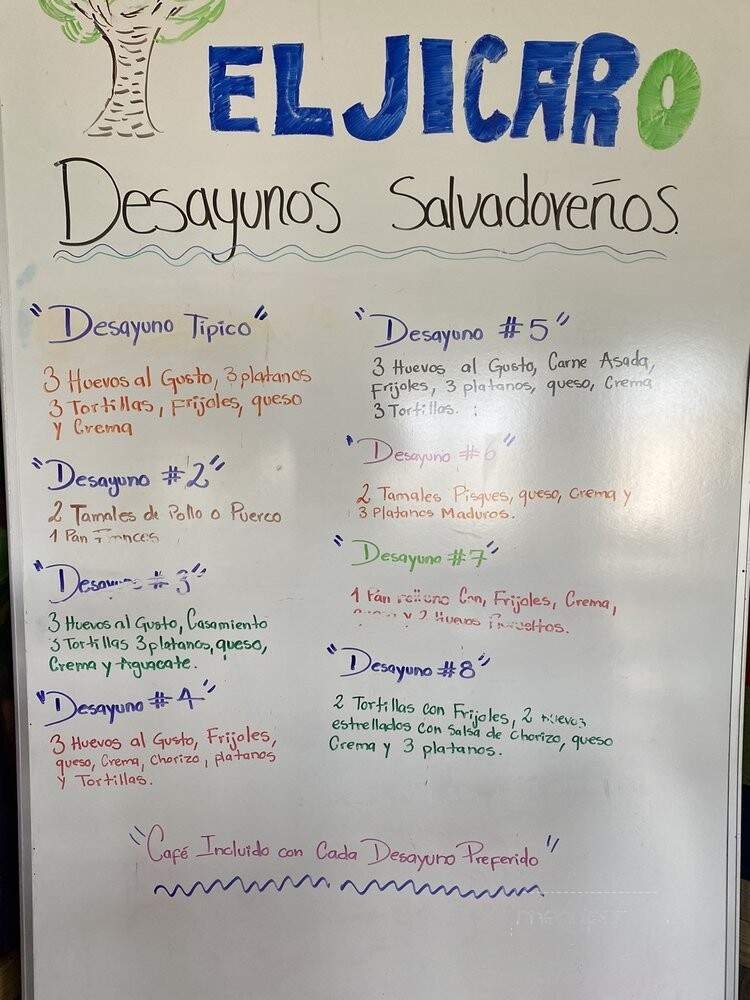 EL JICARO
Desayunos Salvadoreños.
"Desayuno Tipico"
3 Huevos al Gusto, 3 platanos
3 Tortillas, Frijoles, queso
y Crema
"Desayuno #2"
2 Tamales de Pollo o Puerco
1 Pan Frances
"Desayuno #3"
3 Huevos al Gusto, Casamiento
3 Tortillas 3 platanos, queso,
Crema y Aguacate.
"Desayuno #4"
3 Huevos al Gusto, Frijoles,
queso, Crema, chorizo, platanos
y Tortillas.
"Desayuno #5"
3 Huevos al Gusto, Carne Asada,
Frijoles, 3 platanos, queso, Crema
3 Tortillas.
"Desayuno #6"
2 Tamales Pisques, queso, Crema y
3 Platanos Maduros.
"Desayuno #7"
1 Pan relleno Con, Frijoles, Crema,
y 2 Huevos Revueltos.
"Desayuno #8"
2 Tortillas con Frijoles, 2 Huevos
estrellados con Salsa de chorizo, queso
Crema y 3 platanos.
"Café Incluido con Cada Desayuno Preferido"